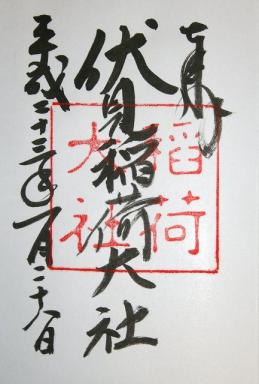 奉拝
伏見稲荷大社
平成二十三年一月二十八日
稲荷
大社